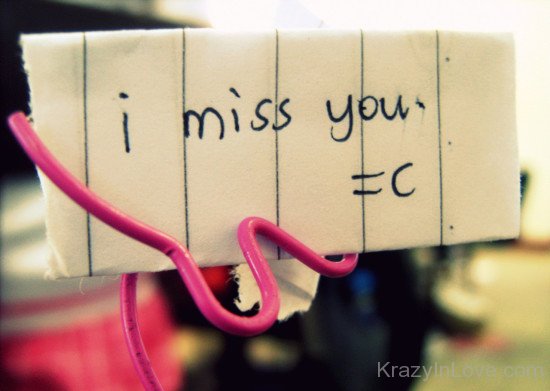 i miss you.
=C
KrazyInLove.com